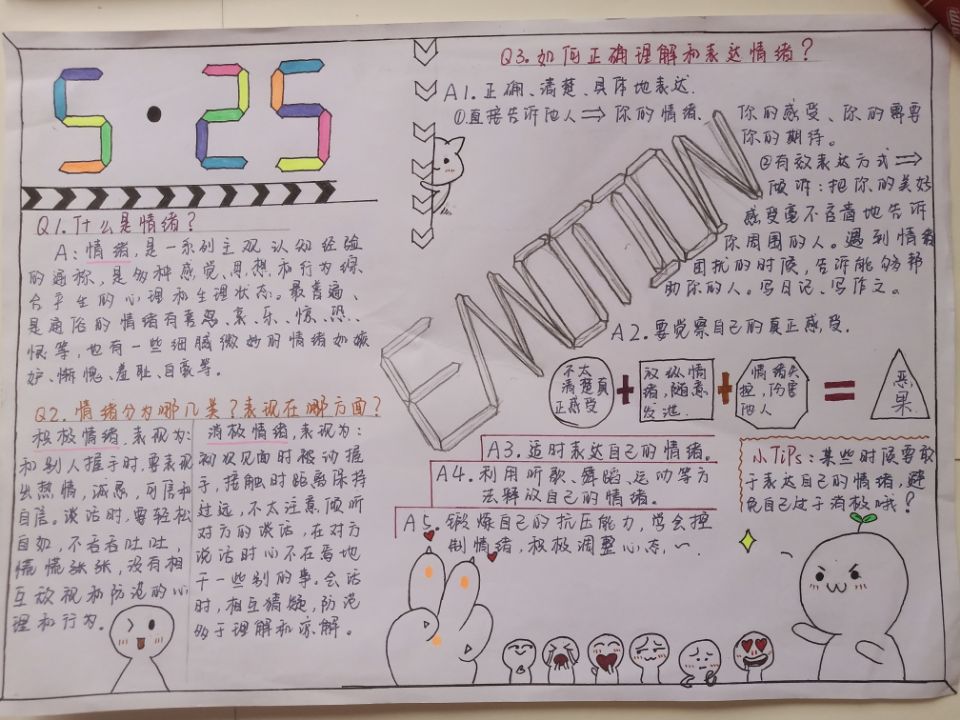 5·25
Q1.什么是情绪?
A:情绪,是一系列主观认知经验
的通称,是多种感觉、思想和行为综
合产生的心理和生理状态。最普遍、
是通俗的情绪有喜、怒、哀、乐、惊、恐、
恨等,也有一些细腻微妙的情绪如嫉
妒、惭愧、羞耻、自豪等。
Q2.情绪分为哪几类?表现在哪方面?
积极情绪,表现为:
和别人握手时,要表现
出热情,诚恳,可信和
自信。谈话时,要轻松
自如,不吞吞吐吐,
慌慌张张,没有相
互敌视和防范的心
理和行为.
消极情绪,表现为:
初次见面时被动握
手,接触时距离保持
过远,不太注意倾听
对方的谈话,在对方
说话时心不在焉地
干一些别的事。会话
时,相互猜疑,防范
多于理解和谅解。
Q3.如何正确理解和表达情绪?
A1.正确、清楚、具体地表达.
①直接告诉他人⇒你的情绪、你的感受、你的需要
你的期待。
②有效表达方式⇒
倾诉:把你的美好
感受毫不吝啬地告诉
你周围的人。遇到情绪
困扰的时候,告诉能够帮
助你的人。写日记、写作文。
EMOTION
A2.要觉察自己的真正感受.
不太
清楚真
正感受
+
放纵情
绪,随意
发泄.
+
情绪失
控,伤害
他人
=
恶
果
A3.适时表达自己的情绪。
A4.利用听歌、舞蹈、运动等方
法释放自己的情绪。
A5.锻炼自己的抗压能力,学会控
制情绪,积极调整心态,~
小TiPs:某些时候要敢
于表达自己的情绪,避
免自己过于消极哦?